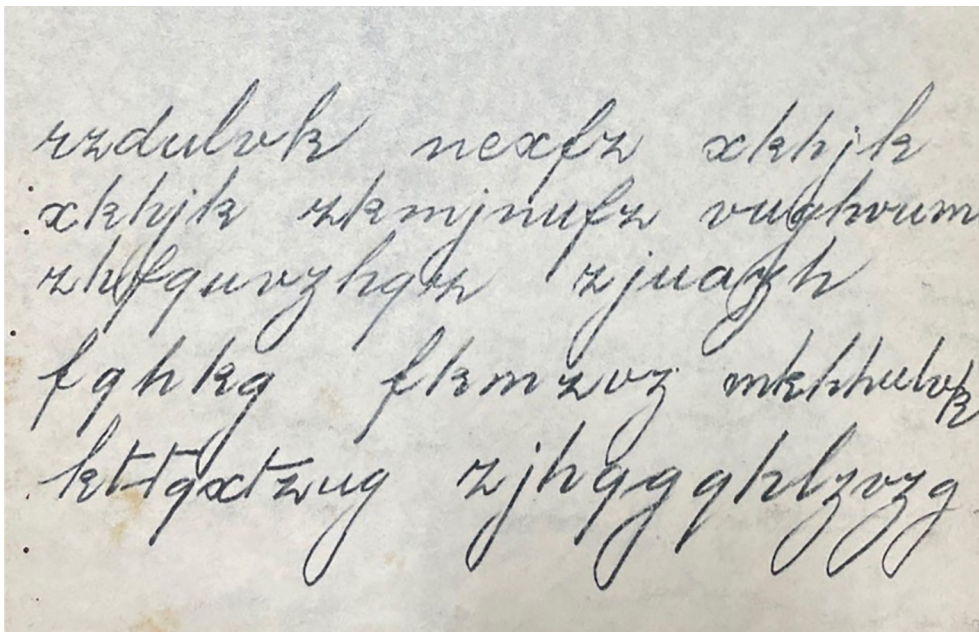 rzdulvk nexfz xkhjk
xkhjk zkmjnufz vughvum
zhfquvzhqz zjuazh
fqhkg fkmzvz mkhhulvk
kttqxtzug zjhqgqhlzvzg